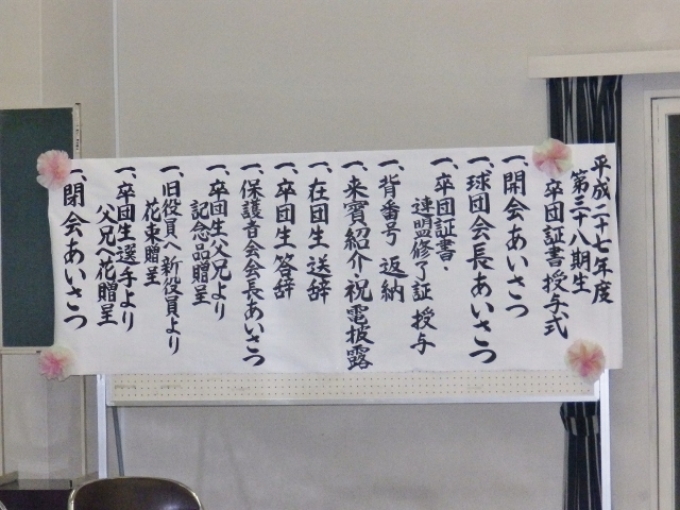 平成二十七年度
第三十八期生
卒団証書授与式
一、開会あいさつ
一、球団会長あいさつ
一、卒団証書・
連盟修了証 授与
一、背番号 返納
一、来賓紹介・祝電披露
一、在団生 送辞
一、卒団生 答辞
一、保護者会会長あいさつ
一、卒団生父兄より
記念品贈呈
一、旧役員へ新役員より
花束贈呈
一、卒団生選手より
父兄へ花贈呈
一、閉会あいさつ